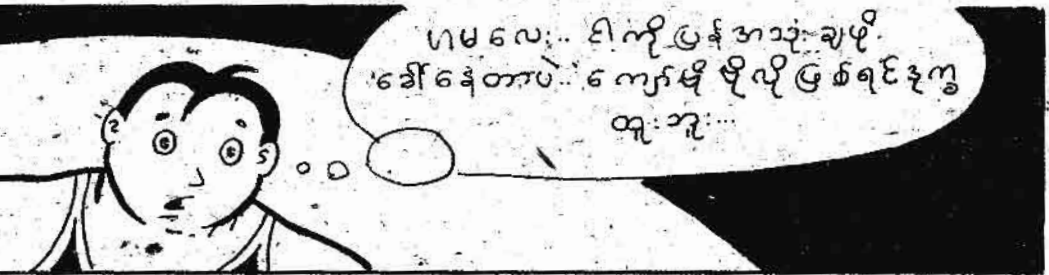 ဟမလေး.. ငါ့ကို ပြန်အသုံးချဖို့
ခေါ်နေတာပဲ.. ကျော်မှို မှိုလိုဖြစ်ရင်ဒုက္ခ
ထူးဘူး...